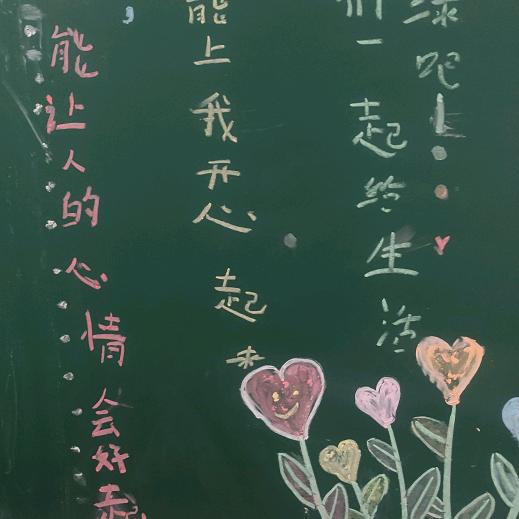 能让人的心情会好起
，
能上我开心起来
们一起给生活
绿吧!